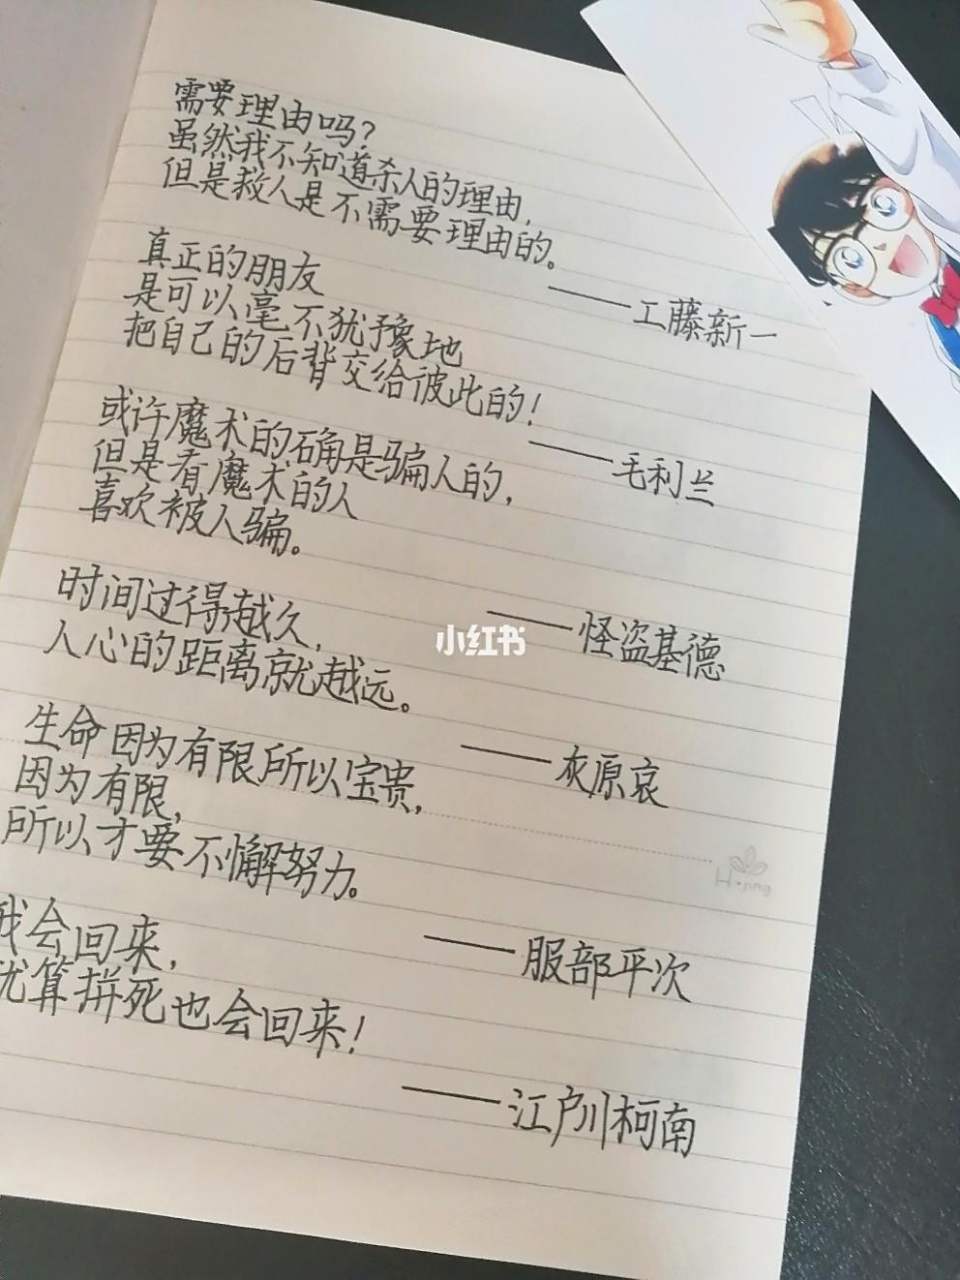 需要理由吗？
虽然我不知道杀人的理由，
但是救人是不需要理由的。
——工藤新一
真正的朋友
是可以毫不犹豫地
把自己的后背交给彼此的！
——毛利兰
或许魔术的确是骗人的，
但是看魔术的人
喜欢被人骗。
——怪盗基德
时间过得越久，
人心的距离就越远。
——灰原哀
生命因为有限所以宝贵，
因为有限，
所以才要不懈努力。
——服部平次
我会回来，
就算拼死也会回来！
——江户川柯南
小红书